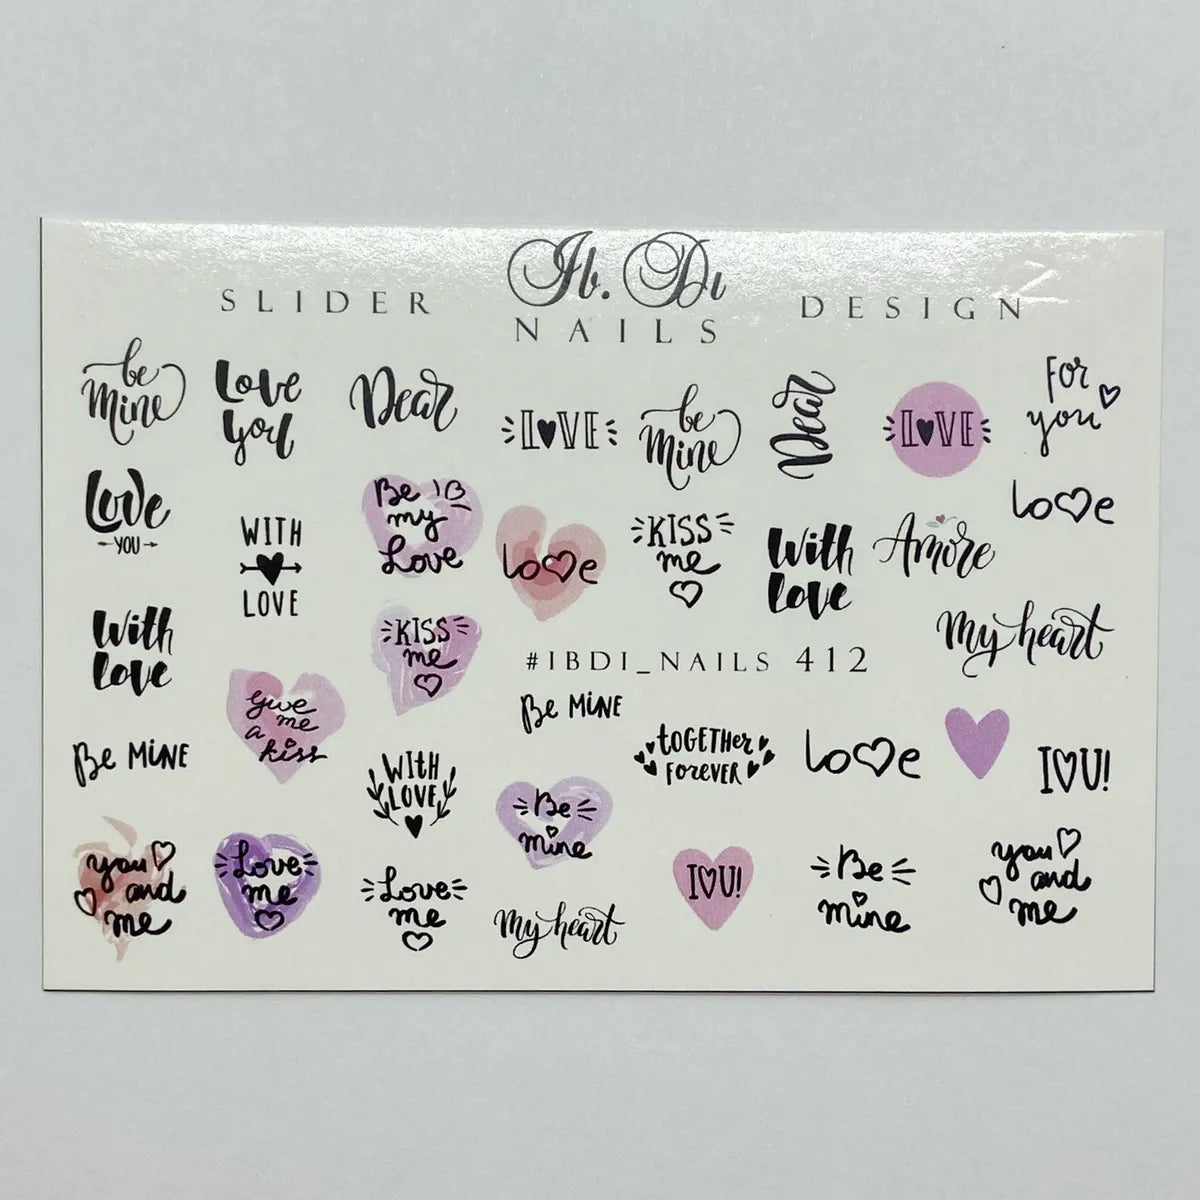 Ib. Di
SLIDER
NAILS
DESIGN
be
Mine
Love
you
Dear
LOVE
be
Mine
Dear
LOVE
For
you
Love
YOU
WITH
LOVE
Be
my
Love
love
KISS
me
With
love
Amore
love
With
love
KISS
me
My heart
#IBDI_NAILS 412
Give
me
a
kiss
Be MiNE
Be MiNE
toGETHer
ForEVER
love
I U!
WIth
LOVE
Be
mine
you
and
me
Love
me
Love
me
My heart
I U!
Be
mine
you
and
me